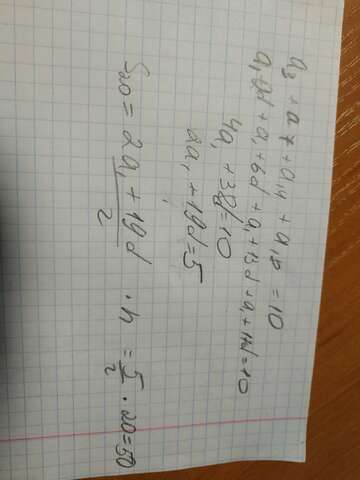 a₃ = a7 + a14 + a18 = 10
a₁ + 2d + a₁ + 6d + a₁ + 13d + a₁ + 17d = 10
4a₁ + 38d = 10
2a₁ + 19d = 5
S20 = (2a₁ + 19d)/2 · n = 5/2 · 20 = 50